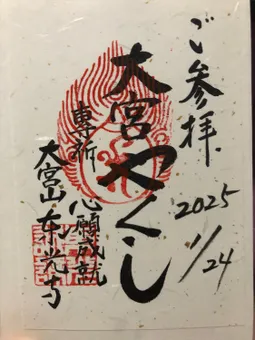 ご参拝
2025
11/24
大宮やくし
専祈 心願成就
大宮山 東光寺